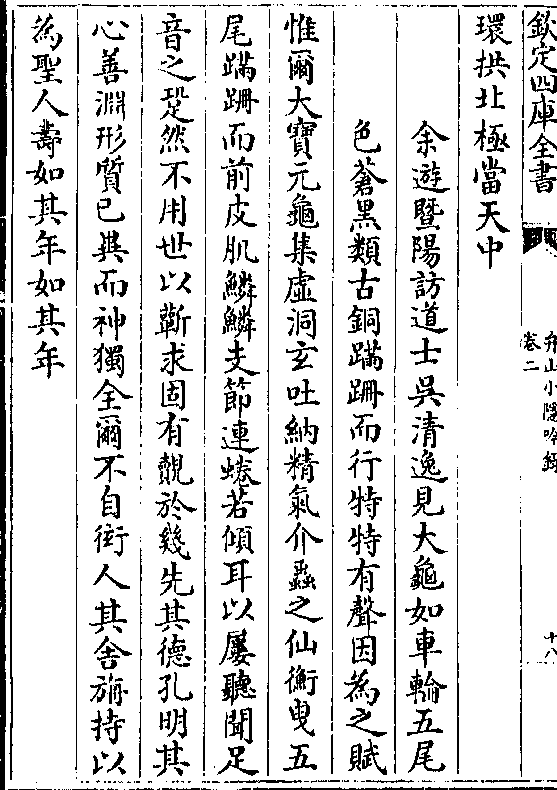 欽定四庫全書
卷二
升山小隱吟錄
十八
環拱北極當天中
余遊暨陽訪道士吳清逸見大龜如車輪五尾
色蒼黑類古銅蹣跚而行特特有聲因為之賦
惟爾大寶元龜集虛洞玄吐納精氣介蟲之仙衡曳五
尾蹣跚而前皮肌鱗鱗支節連蜷若傾耳以屢聽聞足
音之跫然不用世以蘄求固有覿於幾先其德孔明其
心善淵形質已與而神獨全爾不自衒人其舍旃持以
為聖人壽如其年如其年